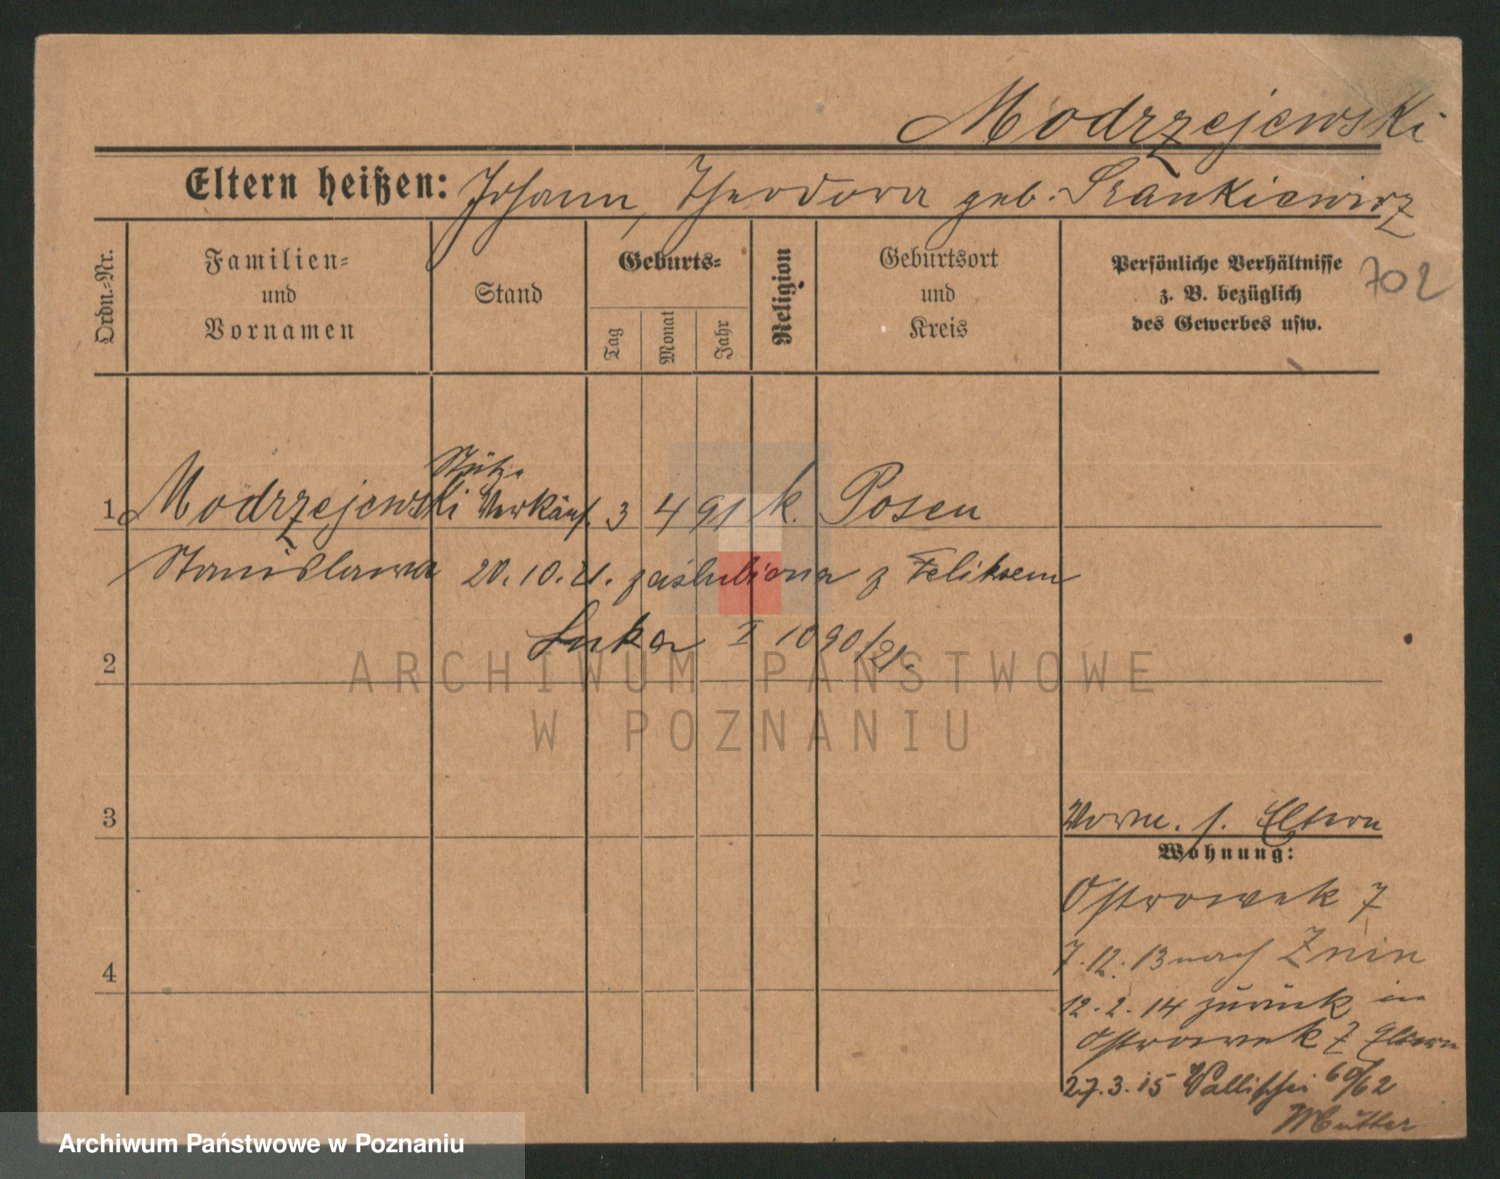 Modrzejewski
Eltern heißen: Johann, Theodora geb. Srankiewicz
Ordn.-Nr.
Familien-
und
Vornamen
Stand
Geburts-
Tag
Monat
Jahr
Religion
Geburtsort
und
Kreis
Persönliche Verhältnisse
z. B. bezüglich
des Gewerbes usw.
702
Stütze
1 Modrzejewski Verkäuf. 3 4 91 k. Posen
Stanislawa 20.10.21. zaślubiona z Feliksem
Luka I 1090/21.
2
ARCHIWUM PAŃSTWOWE
W POZNANIU
3
Vorm. s. Eltern
Wohnung:
Ostrowek 7
7.12.13 nach Znin
4
12.2.14 zurück in
Ostrowek 7 Eltern
27.3.15 Wallischei 60/62
Mutter
Archiwum Państwowe w Poznaniu